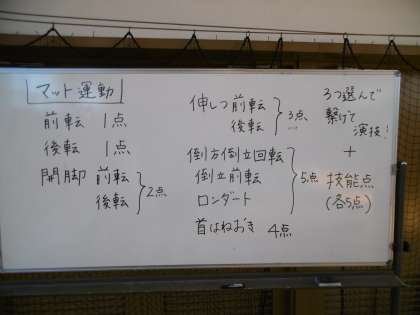 マット運動
前転 1点
後転 1点
開脚 前転
後転
2点
伸しつ前転
後転
3点
倒方倒立回転
倒立前転
ロンダート
5点
首はねおき 4点
3つ選んで
繋げて
演技!
+
技能点
(各5点)